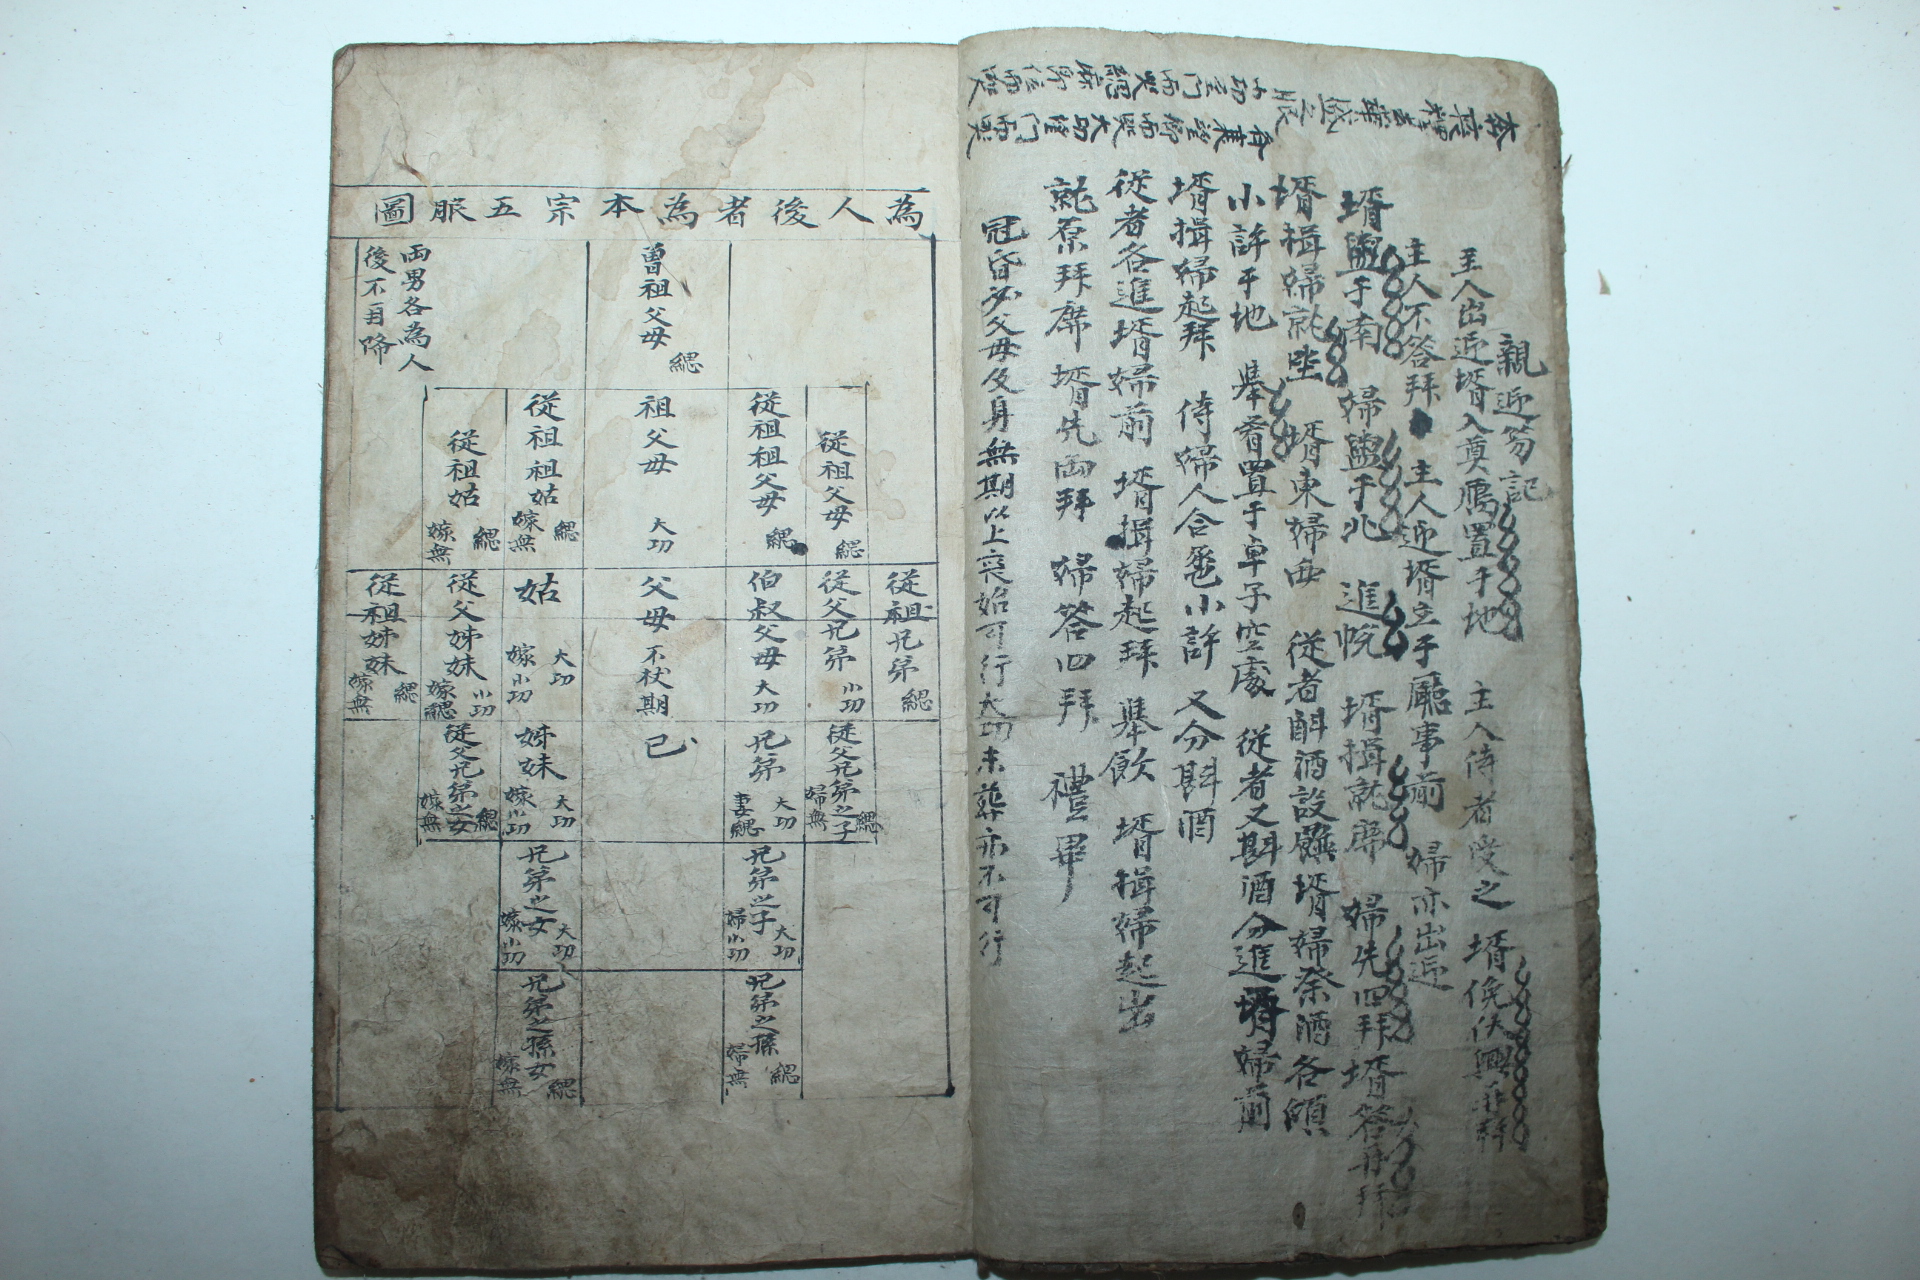 齊衰望鄕而哭大功望門而哭
小功至門而哭緦麻即位而哭
親迎笏記
主人出迎壻入奠鴈置于地 主人侍者受之 壻俛伏興再拜
主人不答拜 主人迎壻立于廳事前 婦亦出迎
壻盥于南 婦盥于北 進帨 壻揖就席 婦先四拜 壻答再拜
壻揖婦就坐 壻東婦西 從者斟酒設饌 壻婦祭酒各傾
小許于地 舉肴置于卓子空處 從者又斟酒分進壻婦前
壻揖婦起拜 侍婦人合巹小許 又分斟酒
從者各進壻婦前 壻揖婦起拜 舉飮 壻揖婦起出
就原拜席 壻先両拜 婦答四拜 禮畢
冠昏必父母及身無期以上喪始可行大功未葬亦不可行
為人後者為本宗五服圖
曽祖父母 緦
両男各為人
後不再降
從祖父母 緦
從祖祖父母 緦
祖父母 大功
從祖祖姑 緦 嫁無
從祖姑 緦 嫁無
從祖兄弟 緦
從父兄弟 小功
伯叔父母 大功
父母 不杖期
姑 大功 嫁小功
從父姊妹 小功 嫁緦
從祖姊妹 緦 嫁無
從父兄弟之子 緦 婦無
兄弟 大功 妻緦
己
姊妹 大功 嫁小功
從父兄弟之女 緦 嫁無
兄弟之子 大功 婦小功
兄弟之女 大功 嫁小功
兄弟之孫 緦 婦無
兄弟之孫女 緦 嫁無